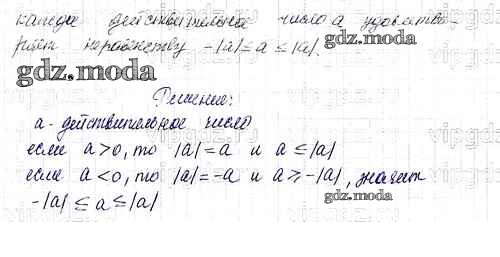 каждое действительное число a удовлетво-
ряет неравенству -|a| ≤ a ≤ |a|.
gdz.moda
gdz.moda
Решение:
a - действительное число
если a > 0, то |a| = a и a ≤ |a|
если a < 0, то |a| = -a и a ≥ -|a|, значит
-|a| ≤ a ≤ |a|
gdz.moda